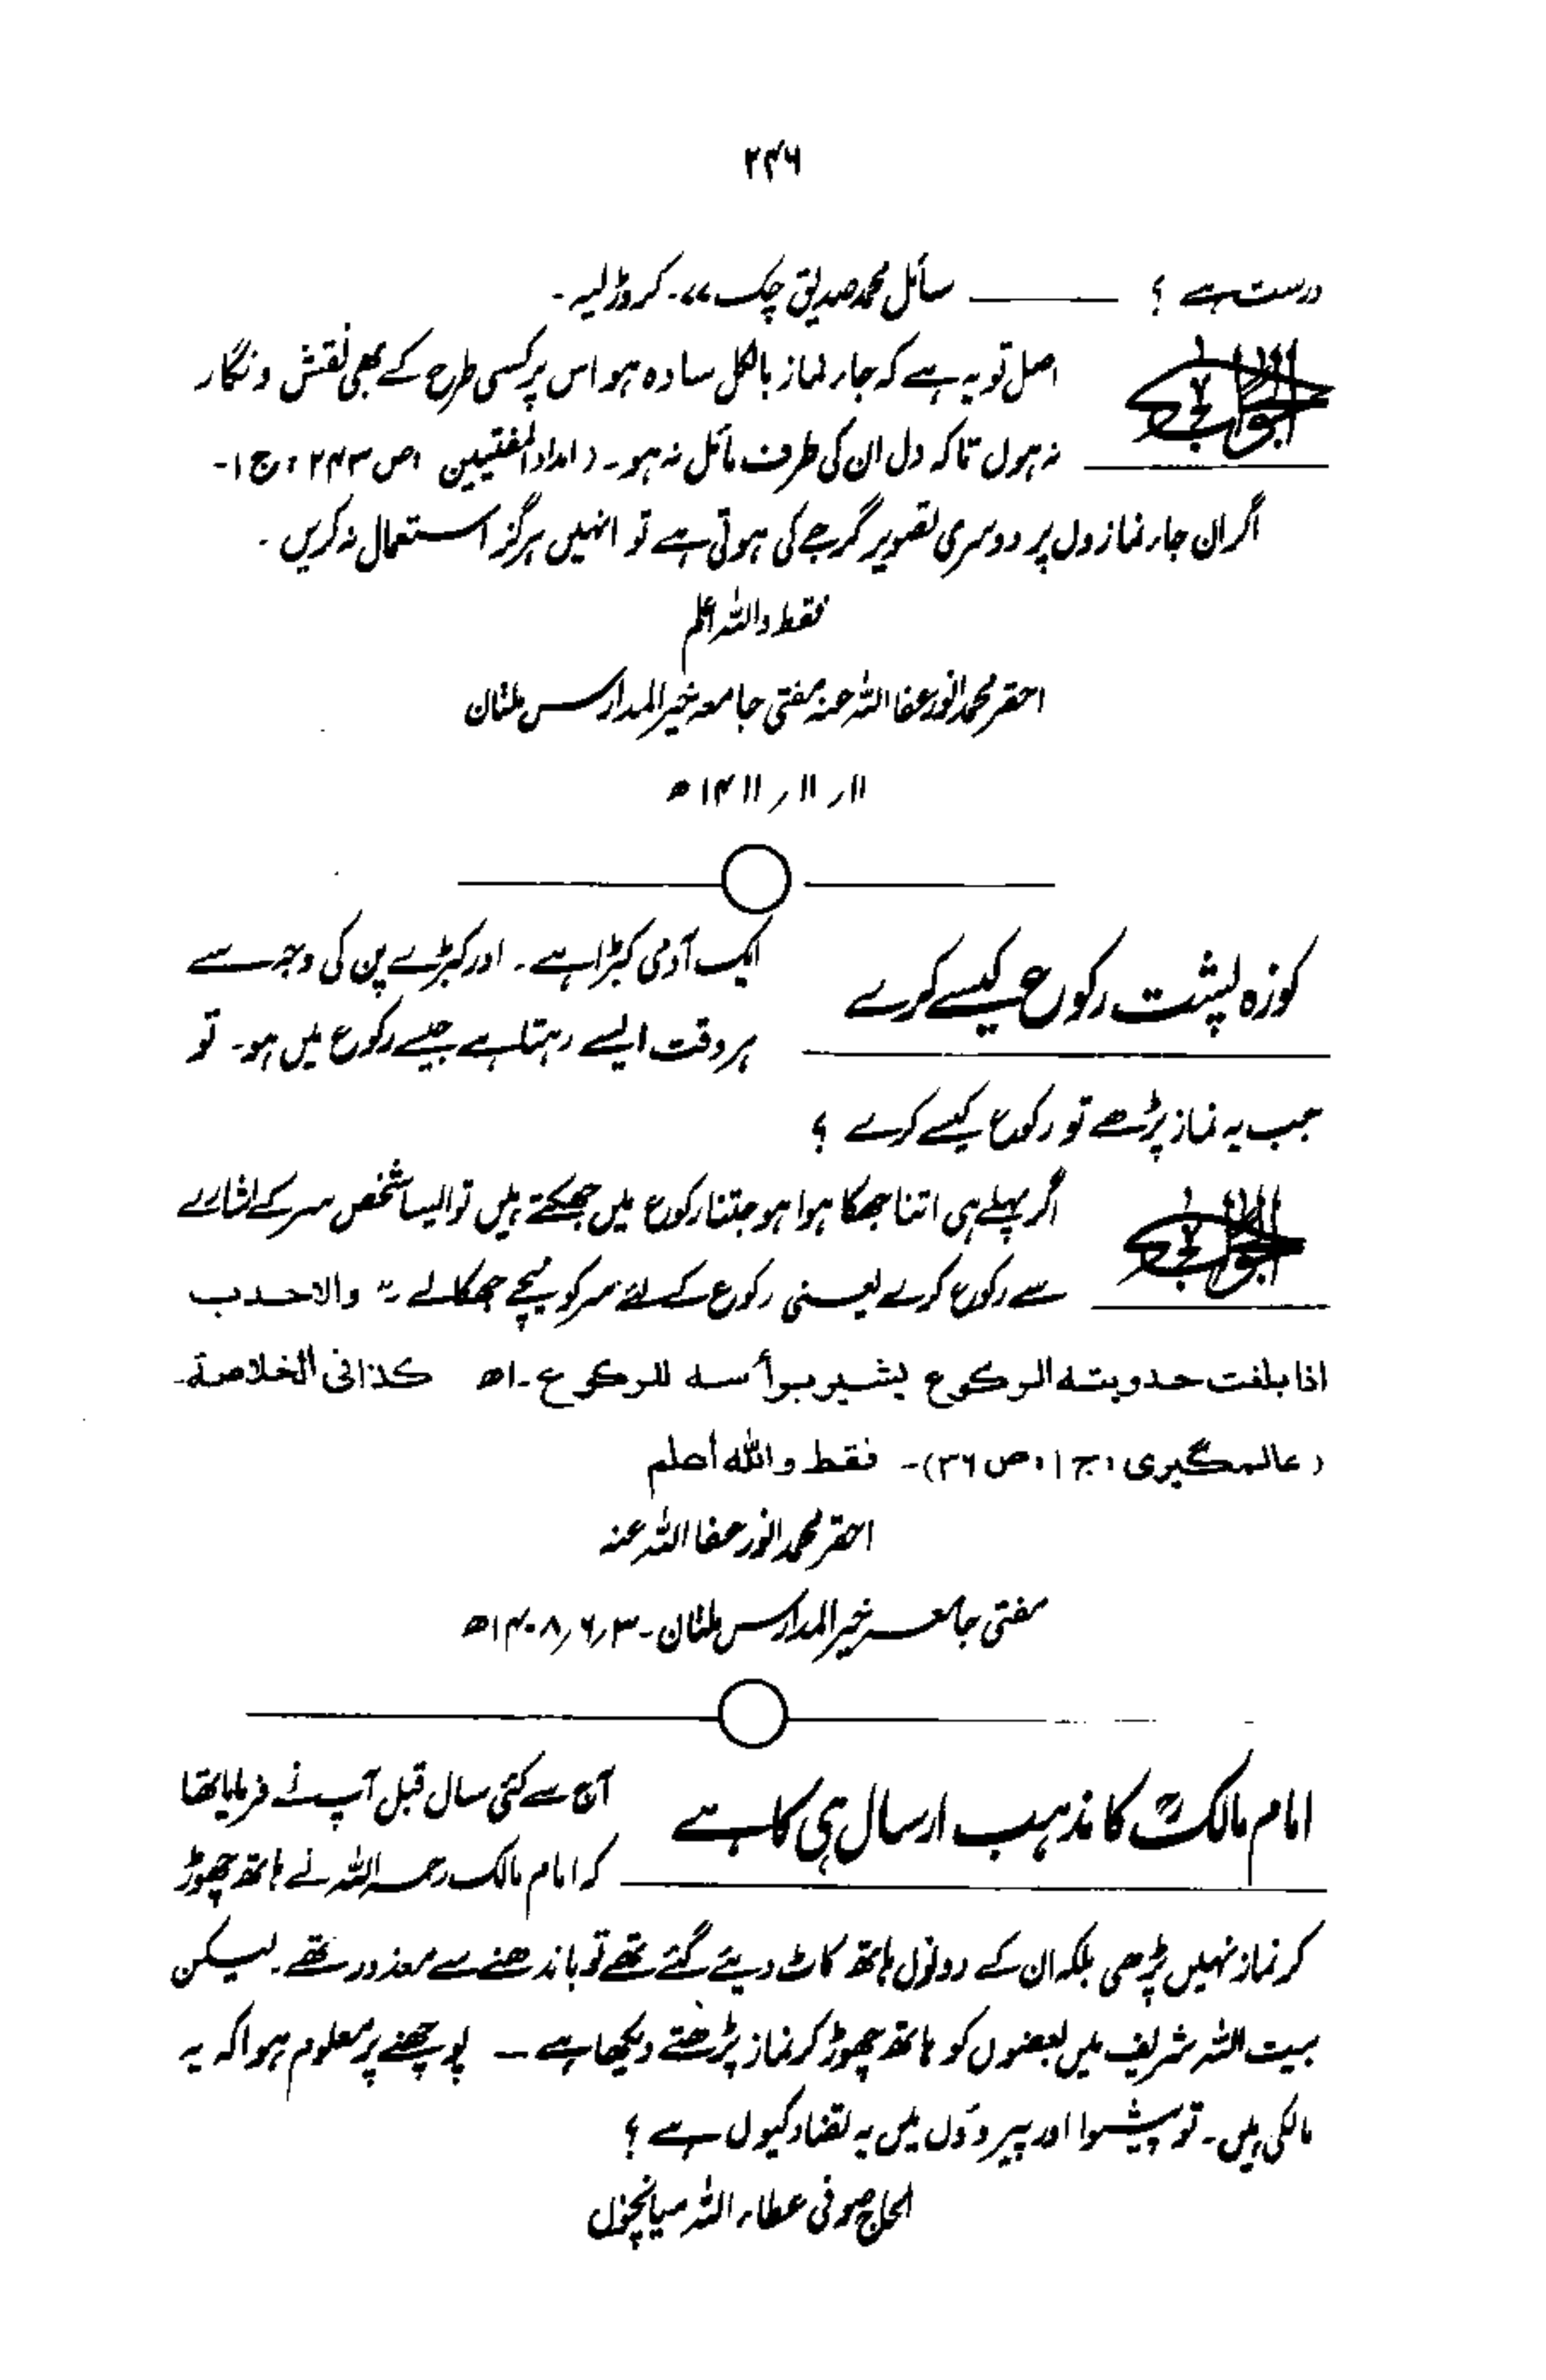 ۲۴۶
درست ہے ؟ ـــــــ سائل محمد صدیق چک ۷۷۔ کروڑ لیہ ۔
الجواب اصل تو یہ ہے کہ جاء نماز بالکل سادہ ہو اس پر کسی طرح کے بھی نقش و نگار
نہ ہوں تاکہ دل ان کی طرف مائل نہ ہو ۔ (امداد المفتیین ، ص ۲۴۳ ، ج ۱ ۔
اگر ان جاء نمازوں پر دوسری تصویر گرجے کی ہوتی ہے تو انہیں ہرگز استعمال نہ کریں ۔
فقط واللہ اعلم
احقر محمد انور عفا اللہ عنہ مفتی جامعہ خیر المدارس ملتان
۱۱ ؍ ۱۱ ؍ ۱۴۱۱ ھ
کوزہ پشت رکوع کیسے کرے
ایک آدمی کبڑا ہے ۔ اور کبڑے پن کی وجہ سے
ہر وقت ایسے رہتا ہے جیسے رکوع میں ہو ۔ تو
جب یہ نماز پڑھے تو رکوع کیسے کرے ؟
الجواب اگر پہلے ہی اتنا جھکا ہوا ہو جتنا رکوع میں جھکتے ہیں تو ایسا شخص سر کے اشارے
سے رکوع کرے یعنی رکوع کے لئے سر کو نیچے جھکا لے ؞ والاحدب
اذا بلغت حدوبته الركوع يشير برأسه للركوع ۔ اھ كذا فی الخلاصة ۔
(عالمگیری ، ج ۱ ، ص ۳۶) ۔ فقط والله أعلم
احقر محمد انور عفا اللہ عنہ
مفتی جامعہ خیر المدارس ملتان ۔ ۳؍۶؍۱۴۰۸ھ
امام مالکؒ کا مذہب ارسال ہی کا ہے
آج سے کئی سال قبل آپ نے فرمایا تھا
کہ امام مالک رحمہ اللہ نے ہاتھ چھوڑ
کر نماز نہیں پڑھی بلکہ ان کے دونوں ہاتھ کاٹ دیئے گئے تھے تو باندھنے سے معذور تھے ۔ لیکن
بیت اللہ شریف میں بعضوں کو ہاتھ چھوڑ کر نماز پڑھتے دیکھا ہے ۔ پوچھنے پر معلوم ہوا کہ یہ
مالکی ہیں ۔ تو پیشوا اور پیروؤں میں یہ تضاد کیوں ہے ؟
الحاج صوفی عطاء اللہ میانچنوں